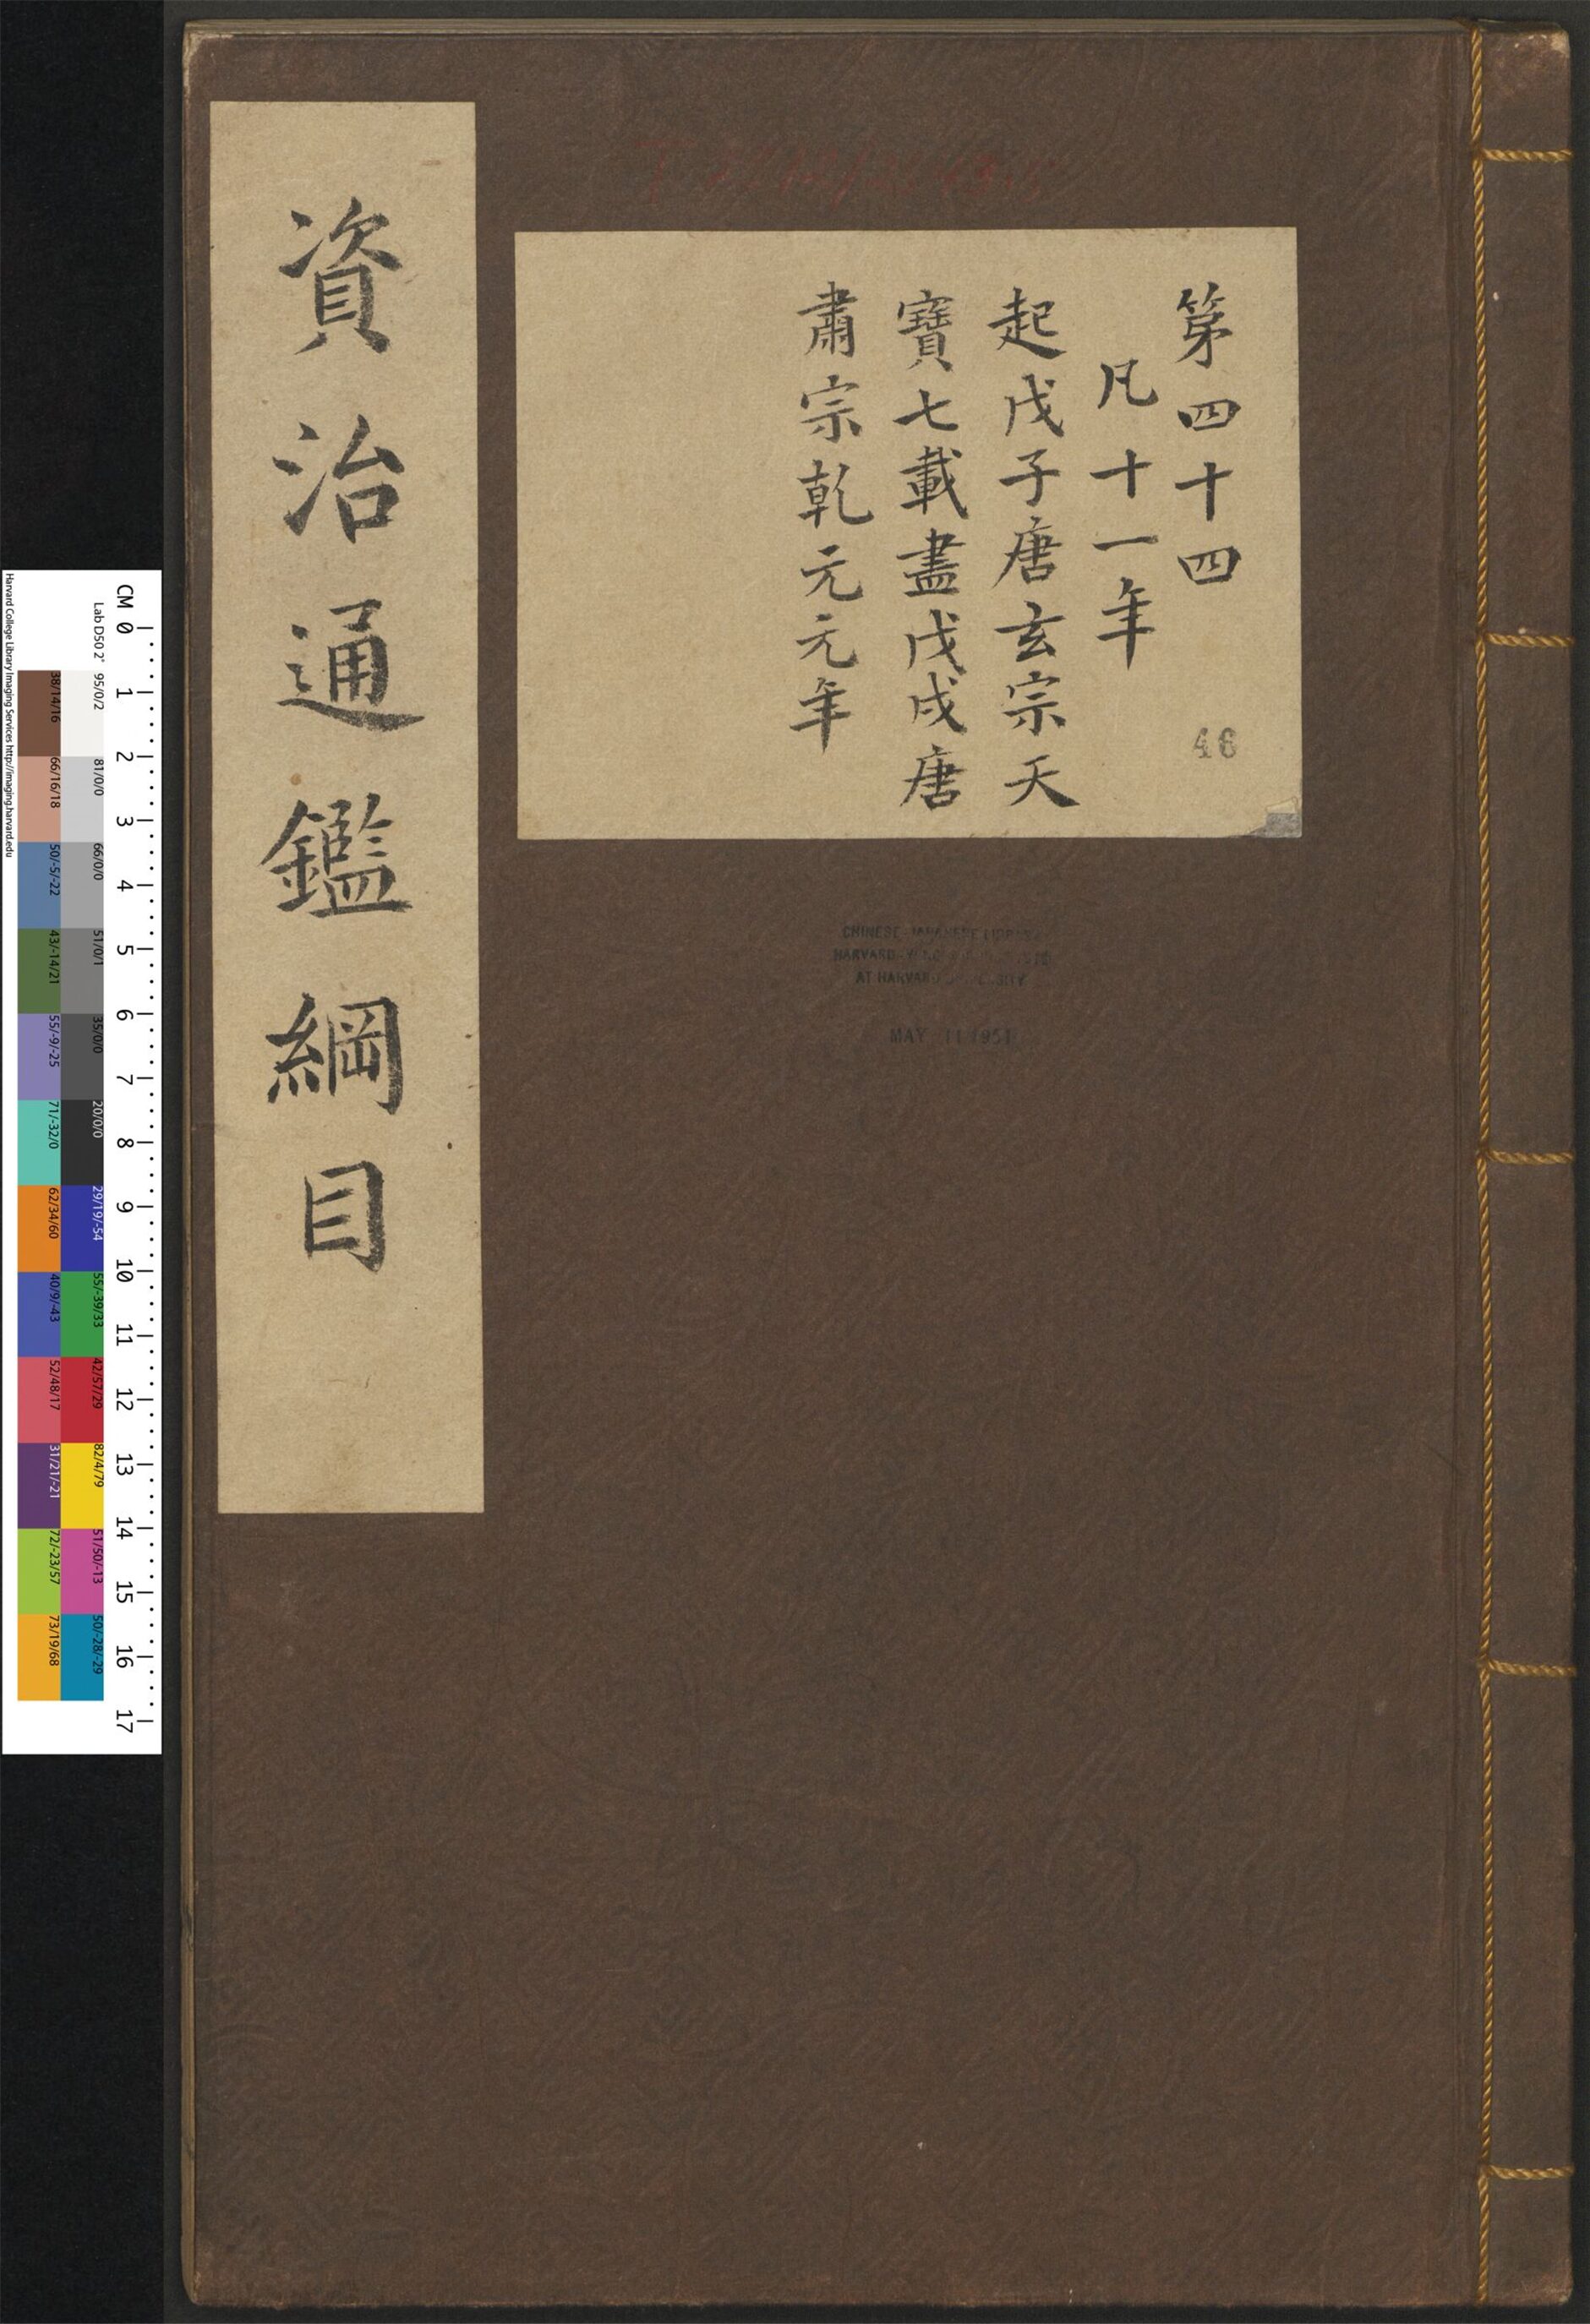 第四十四
凡十一年
起戊子唐玄宗天
寶七載盡戊戌唐
肅宗乾元元年
46
資治通鑑綱目
CHINESE-JAPANESE LIBRARY
HARVARD-
AT HARVARD UNIVERSITY
MAY 11 1951
CM 0 1 2 3 4 5 6 7 8 9 10 11 12 13 14 15 16 17
Lab D50 2° 95/0/2 81/0/0 66/0/0 51/0/1 35/0/0 20/0/0 29/19/-54 55/-39/33 42/57/29 82/4/79 51/50/-13 50/-28/-29
38/14/16 66/16/18 50/-5/-22 43/-14/21 55/-9/-25 71/-32/0 62/34/60 40/9/-43 52/48/17 31/21/-21 72/-23/57 73/19/68
Harvard College Library Imaging Services http://imaging.harvard.edu